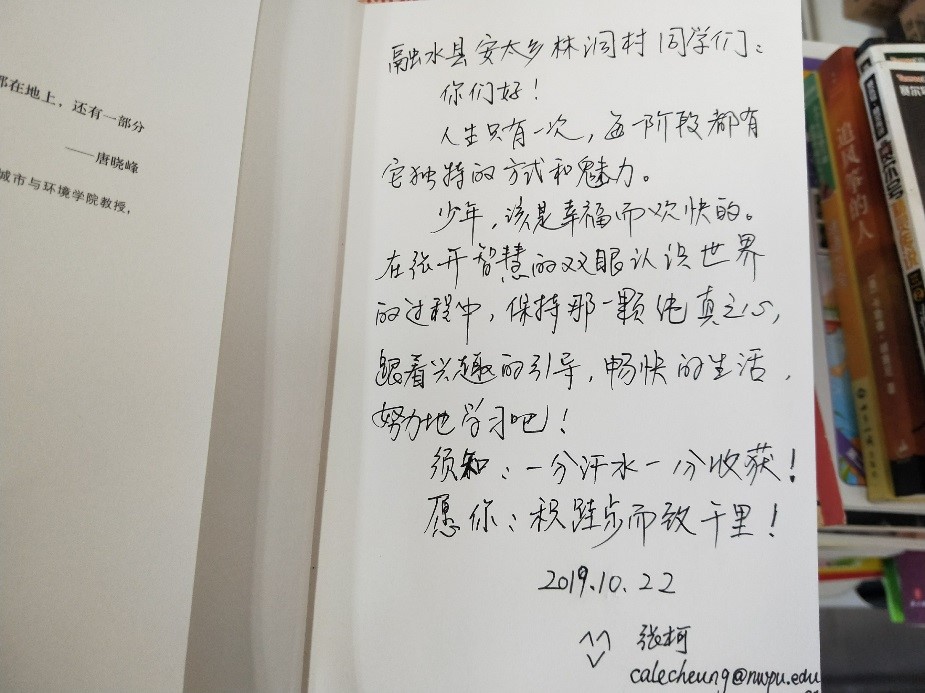 都在地上，还有一部分
——唐晓峰
城市与环境学院教授，
融水县安太乡林洞村同学们：
你们好！
人生只有一次，每一阶段都有
它独特的方式和魅力。
少年，该是幸福而欢快的。
在张开智慧的双眼认识世界
的过程中，保持那一颗纯真之心，
跟着兴趣的引导，畅快的生活，
努力地学习吧！
须知：一分汗水一分收获！
愿你：积跬步而致千里！
2019.10.22
^^
张柯
calecheung@nwpu.edu
追风筝的人